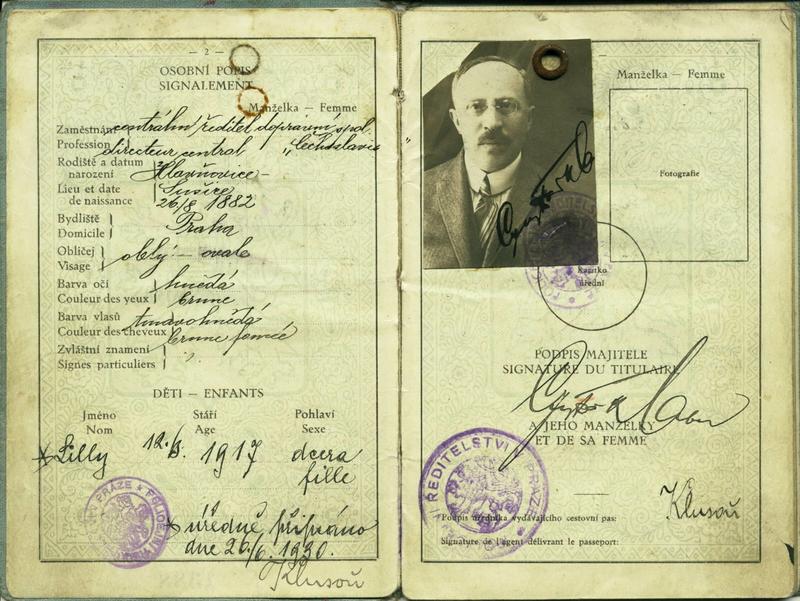 — 2 —
OSOBNÍ POPIS
SIGNALEMENT
Manželka — Femme
Zaměstnání centrální ředitel dopravní spol.
Profession directeur central „Čechoslavia"
Rodiště a datum narození Hlavňovice —
Lieu et date de naissance Sušice
26/8 1882
Bydliště Praha
Domicile
Obličej oblý — ovale
Visage
Barva očí hnědá
Couleur des yeux brune
Barva vlasů tmavohnědá
Couleur des cheveux brune foncée
Zvláštní znamení
Signes particuliers
DĚTI — ENFANTS
Jméno Stáří Pohlaví
Nom Age Sexe
Lilly 1917 dcera
fille
úředně připsáno
dne 26/6. 1930.
Klusoň
Manželka — Femme
Fotografie
Razítko
úřední
PODPIS MAJITELE
SIGNATURE DU TITULAIRE
A JEHO MANŽELKY
ET DE SA FEMME
ŘEDITELSTVÍ V PRAZE
Klusoň
Podpis úředníka vydávajícího cestovní pas:
Signature de l'agent délivrant le passeport: